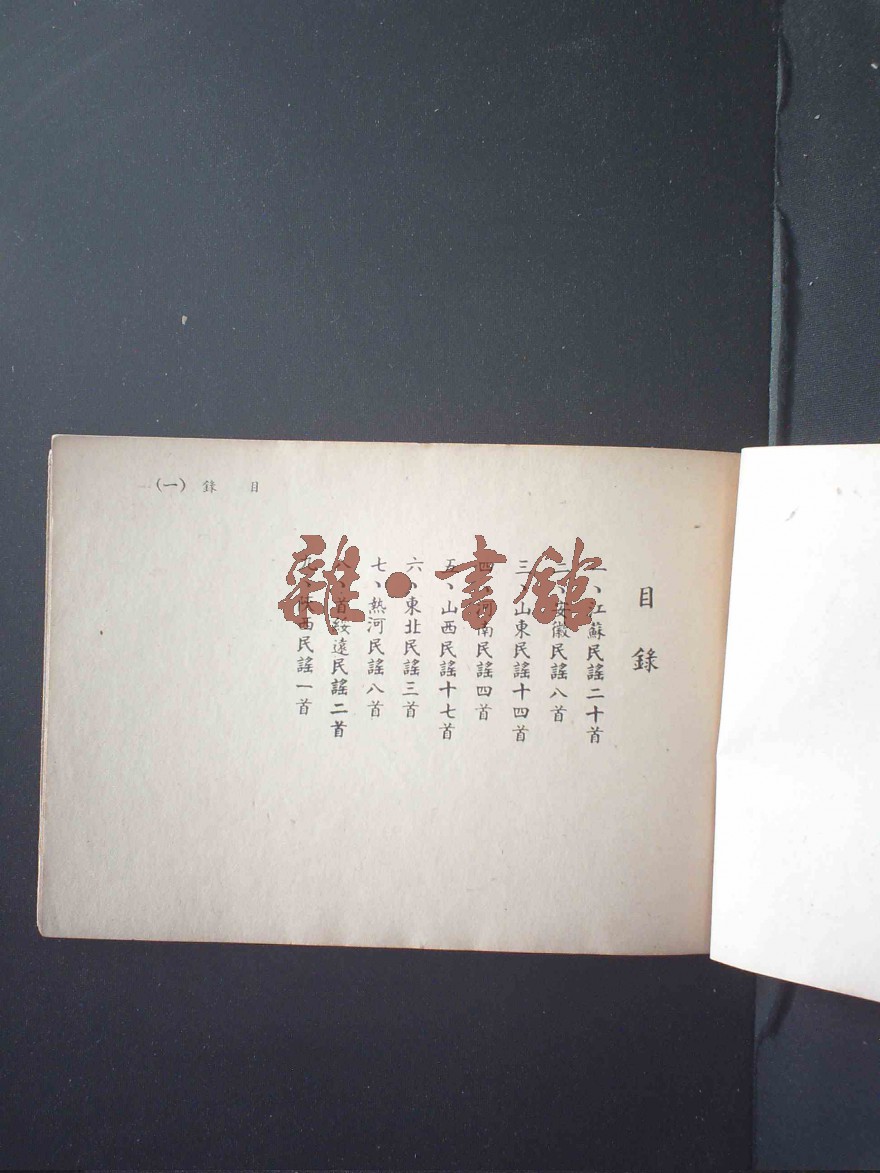 目錄
一、江蘇民謠二十首
二、安徽民謠八首
三、山東民謠十四首
四、河南民謠四首
五、山西民謠十七首
六、東北民謠三首
七、熱河民謠八首
八、首綏遠民謠二首
九、陝西民謠一首
目錄(一)
雜·書館